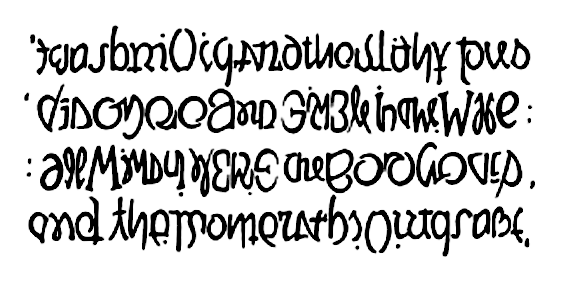 'twas brillig and the slithy toves
'did gyre and gimble in the wabe:
:all mimsy were the borogoves,
and the mome raths outgrabe.